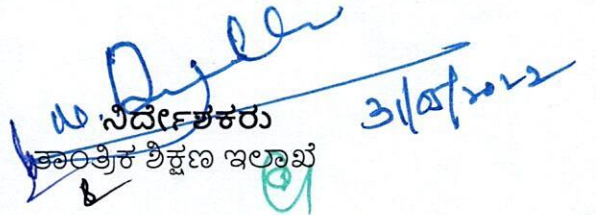 31/05/2022
ನಿರ್ದೇಶಕರು
ತಾಂತ್ರಿಕ ಶಿಕ್ಷಣ ಇಲಾಖೆ